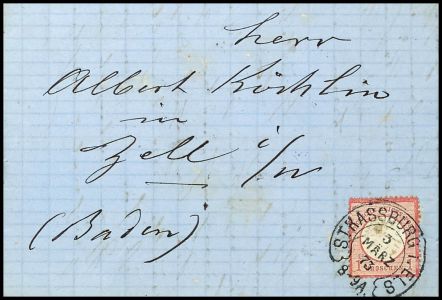 Herr
Albert Köchlin
in
Zell i/W
(Baden)
STRASSBURG I. ELS
5
MÄRZ
73
8-9A.
GROSCHEN